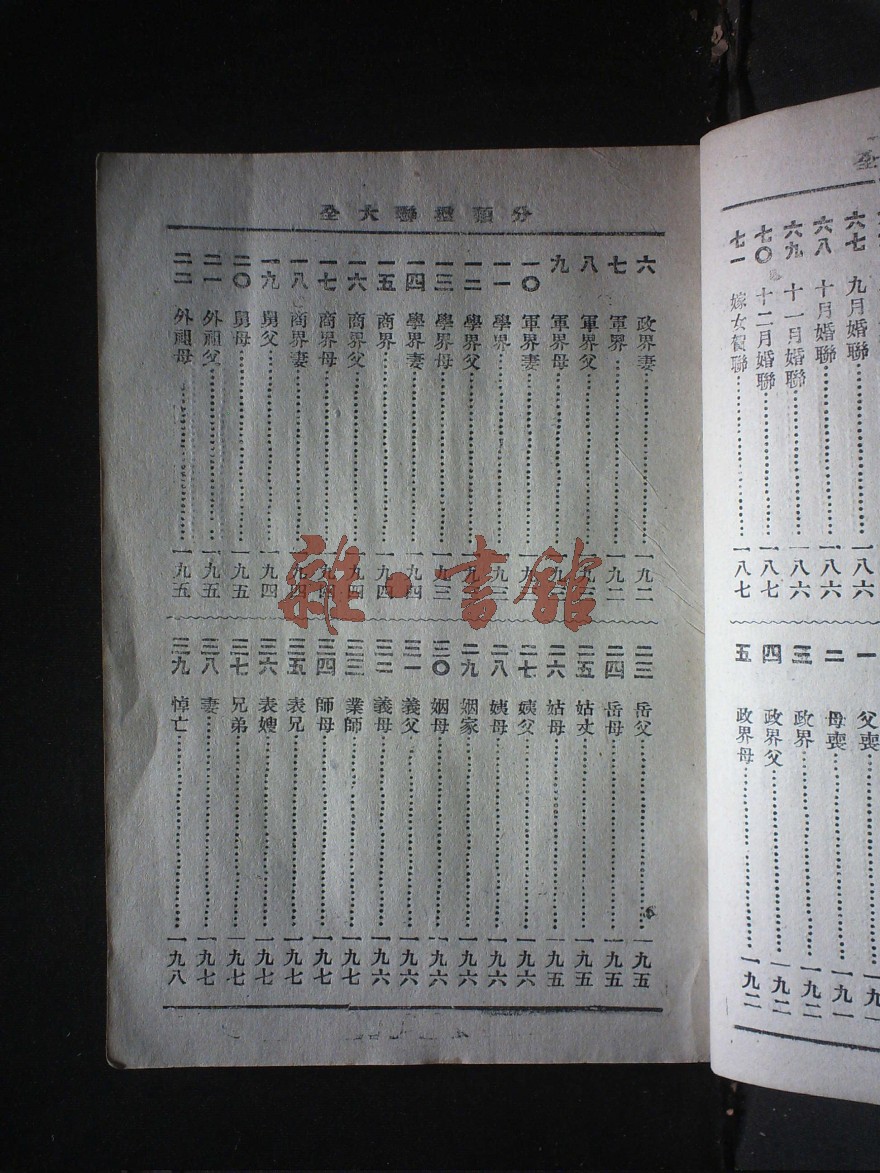 全
六七 九月婚聯……一八六
六八 十月婚聯……一八六
六九 十一月婚聯……一八六
七〇 十二月婚聯……一八七
七一 嫁女賀聯……一八七
一 父喪……一九
二 母喪……一九一
三 政界……一九二
四 政界父……一九二
五 政界母……一九二
分類楹聯大全
六 政界妻……一九二
七 軍界……一九二
八 軍界父……一九三
九 軍界母……一九三
一〇 軍界妻……一九三
一一 學界……一九三
一二 學界父……一九三
一三 學界母……一九三
一四 學界妻……一九四
一五 商界……一九四
一六 商界父……一九四
一七 商界母……一九四
一八 商界妻……一九四
一九 舅父……一九四
二〇 舅母……一九五
二一 外祖父……一九五
二二 外祖母……一九五
二三 岳父……一九五
二四 岳母……一九五
二五 姑丈……一九五
二六 姑母……一九五
二七 姨父……一九六
二八 姨母……一九六
二九 姻家……一九六
三〇 姻母……一九六
三一 義父……一九六
三二 義母……一九六
三三 業師……一九七
三四 師母……一九七
三五 表兄……一九七
三六 表嫂……一九七
三七 兄弟……一九七
三八 妻……一九七
三九 悼亡……一九八
雜·書館